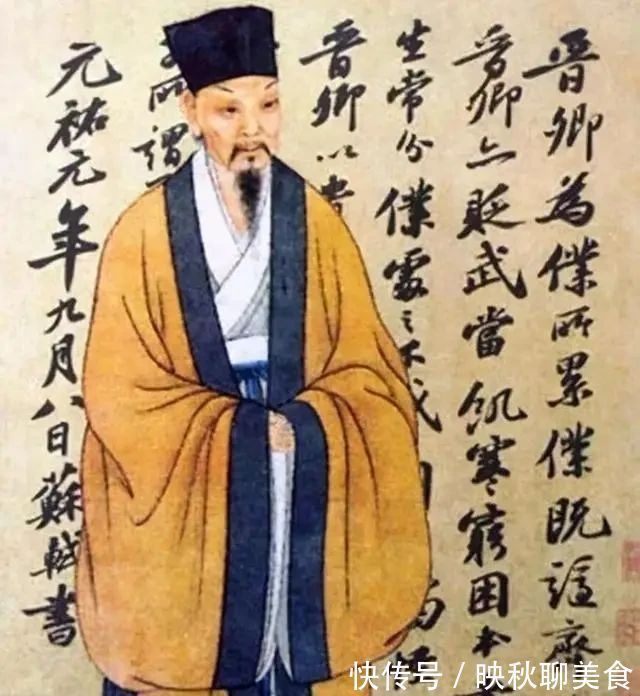 晉卿為僕所累僕既謫齊
晉卿亦貶武當飢寒窮困本
生常分僕處之不戚
晉卿以貴
所謂
元祐元年九月八日蘇軾書
快传号 / 映秋聊美食